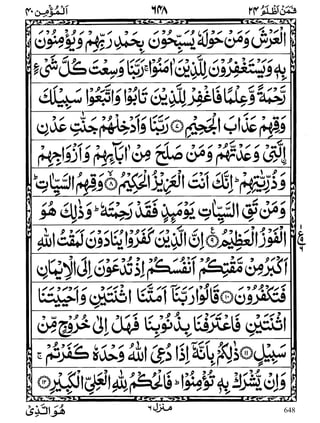 المؤمن ٤٠ ٦٤٨ فمن اظلم ٢٣
الْعَرْشَ وَمَنْ حَوْلَهٗ يُسَبِّحُوْنَ بِحَمْدِ رَبِّهِمْ وَيُؤْمِنُوْنَ
بِهٖ وَيَسْتَغْفِرُوْنَ لِلَّذِيْنَ اٰمَنُوْا ۚ رَبَّنَا وَسِعْتَ كُلَّ شَىْءٍ
رَّحْمَةً وَّعِلْمًا فَاغْفِرْ لِلَّذِيْنَ تَابُوْا وَاتَّبَعُوْا سَبِيْلَكَ
وَقِهِمْ عَذَابَ الْجَحِيْمِ ﴿٧﴾ رَبَّنَا وَاَدْخِلْهُمْ جَنّٰتِ عَدْنِ
الَّتِىْ وَعَدْتَّهُمْ وَمَنْ صَلَحَ مِنْ اٰبَآئِهِمْ وَاَزْوَاجِهِمْ
وَذُرِّيّٰتِهِمْ ؕ اِنَّكَ اَنْتَ الْعَزِيْزُ الْحَكِيْمُ ﴿٨﴾ وَقِهِمُ السَّيِّاٰتِ ؕ
وَمَنْ تَقِ السَّيِّاٰتِ يَوْمَئِذٍ فَقَدْ رَحِمْتَهٗ ؕ وَذٰلِكَ هُوَ
الْفَوْزُ الْعَظِيْمُ ﴿٩﴾ اِنَّ الَّذِيْنَ كَفَرُوْا يُنَادَوْنَ لَمَقْتُ اللّٰهِ
اَكْبَرُ مِنْ مَّقْتِكُمْ اَنْفُسَكُمْ اِذْ تُدْعَوْنَ اِلَى الْاِيْمَانِ
فَتَكْفُرُوْنَ ﴿١٠﴾ قَالُوْا رَبَّنَاۤ اَمَتَّنَا اثْنَتَيْنِ وَاَحْيَيْتَنَا
اثْنَتَيْنِ فَاعْتَرَفْنَا بِذُنُوْبِنَا فَهَلْ اِلٰى خُرُوْجٍ مِّنْ
سَبِيْلٍ ﴿١١﴾ ذٰلِكُمْ بِاَنَّهٗۤ اِذَا دُعِىَ اللّٰهُ وَحْدَهٗ كَفَرْتُمْ ۚ
وَاِنْ يُّشْرَكْ بِهٖ تُؤْمِنُوْا ؕ فَالْحُكْمُ لِلّٰهِ الْعَلِىِّ الْكَبِيْرِ ﴿١٢﴾
هُوَ الَّذِىْ منزل ٦ 648